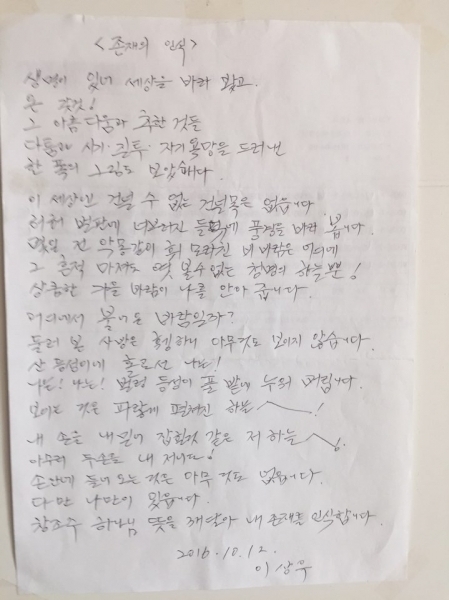 <존재의 인식>
생명이 있어 세상을 바라 보았고
온 갖것!
그 아름다움과 추한 것들
다툼과 시기·질투·자기욕망을 드러낸
한 폭의 그림도 보았습니다.
이 세상엔 건널 수 없는 건널목은 없습니다
벌판에 너브러진 들녘에 풍경들 바라 봅니다.
몇일 전 휘 모라친 비 바람은 어디에
그 흔적 마저도 엿 볼수 없는 청명의 하늘뿐!
상큼한 가을 바람이 나를 안아 줍니다.
어디에서 불어온 바람일까?
둘러 본 사방은 휑하니 아무것도 보이지 않습니다.
산 등성이에 홀로선 나는!
나는! 나는! 벌렁 등성이 풀 밭에 누워 버립니다.
보이는 것은 파랗게 펼쳐진 하늘!
내 손을 내밀어 잡힐것 같은 저 하늘!
아무리 두손을 내 저어도!
손안에 들어 오는 것은 아무 것도 없습니다.
다만 나만이 있습니다.
창조주 하나님 뜻을 깨달아 내 존재를 인식합니다.
2016.10.12.
이상우